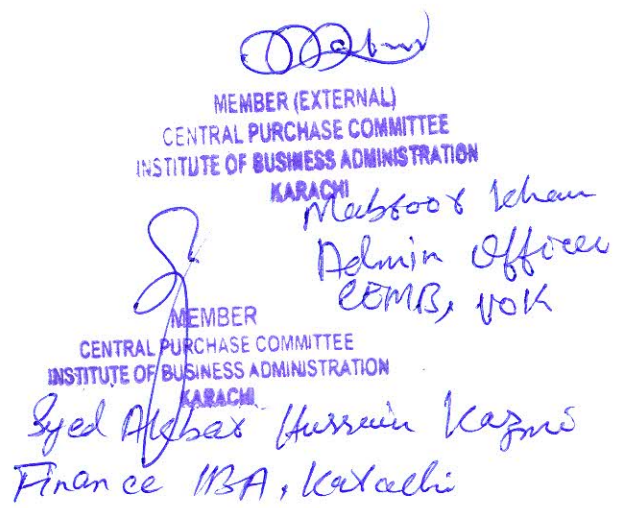 MEMBER (EXTERNAL)
CENTRAL PURCHASE COMMITTEE
INSTITUTE OF BUSINESS ADMINISTRATION
KARACHI
Mabroor Khan
Admin Officer
CEMB, UOK
MEMBER
CENTRAL PURCHASE COMMITTEE
INSTITUTE OF BUSINESS ADMINISTRATION
KARACHI
Syed Akbar Hussain Kazmi
Finance IBA, Karachi